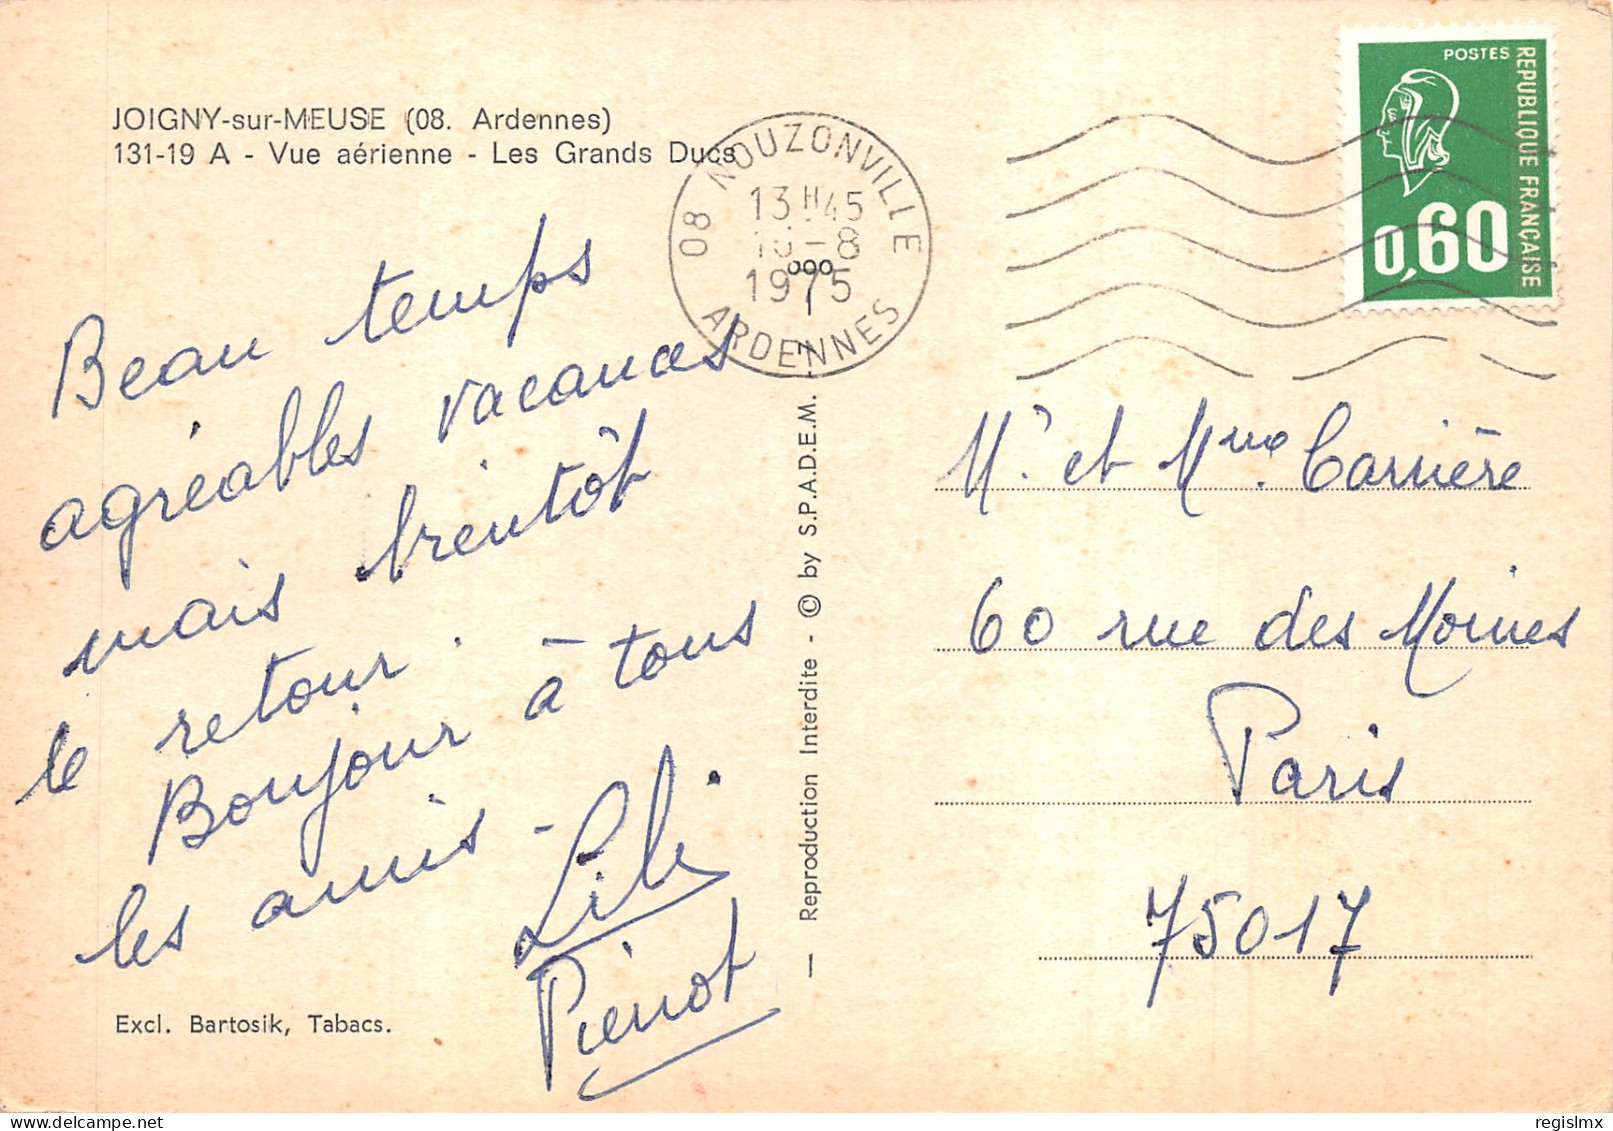 JOIGNY-sur-MEUSE (08. Ardennes)
131-19 A - Vue aérienne - Les Grands Ducs
Beau temps
agréables vacances
mais bientôt
le retour.
Bonjour à tous
les amis -
Lili
Pierrot
Excl. Bartosik, Tabacs.
— Reproduction Interdite - © by S.P.A.D.E.M. -
08 NOUZONVILLE
13H45
-8
1975
ARDENNES
POSTES
REPUBLIQUE FRANÇAISE
0,60
Mr et Mme Carrière
60 rue des Moines
Paris
75017
regislmx